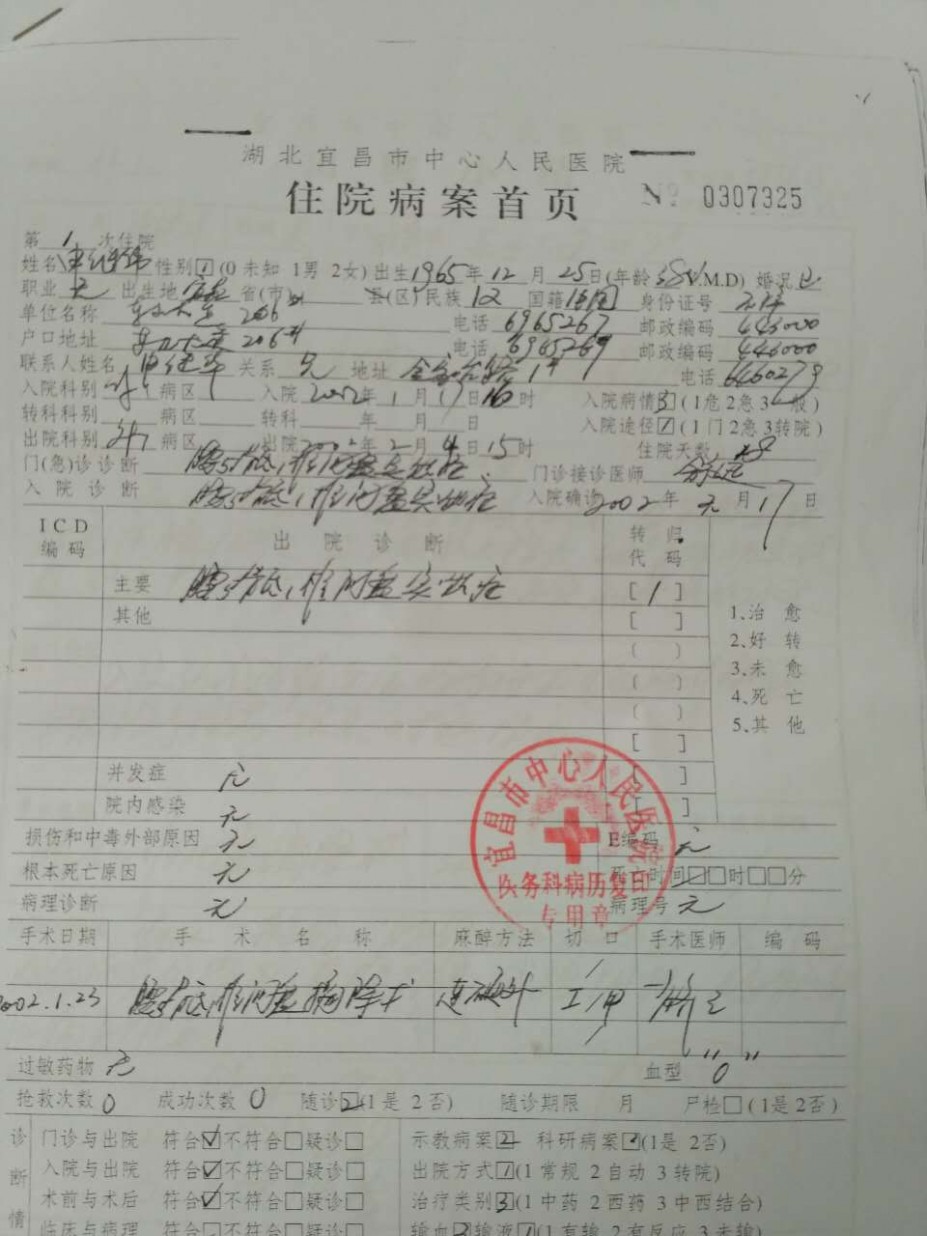 湖北宜昌市中心人民医院
住院病案首页 № 0307325
第 1 次住院
姓名 性别 1 (0 未知 1男 2女) 出生 1965 年 12 月 25 日 (年龄 Y.M.D) 婚况 已
职业 无 出生地 宜昌 省(市) 县(区) 民族 汉 国籍 中国 身份证号
单位名称 电话 6965267 邮政编码 443000
户口地址 电话 6965267 邮政编码 443000
联系人姓名 关系 兄 地址 电话 6460279
入院科别 病区 入院 2002 年 1 月 17 日 16 时 入院病情 3 (1危2急3一般)
转科科别 病区 转科 年 月 日 入院途径 1 (1门2急3转院)
出院科别 病区 出院 2002 年 2 月 4 日 15 时 住院天数 18
门(急)诊诊断 腰5骶1椎间盘突出症 门诊接诊医师
入院诊断 腰5骶1椎间盘突出症 入院确诊 2002 年 元 月 17 日
ICD编码 出院诊断 转归代码
主要 腰5骶1椎间盘突出症 [ 1 ]
其他 [ ]
1、治愈
2、好转
3、未愈
4、死亡
5、其他
并发症 无 [ ]
院内感染 无 [ ]
损伤和中毒外部原因 无 E编码 无
根本死亡原因 无 死亡时间 □□时□□分
病理诊断 无 病理号 无
宜昌市中心人民医院
医务科病历复印
专用章
手术日期 手术名称 麻醉方法 切口 手术医师 编码
2002.1.23 腰5骶1椎间盘摘除术 连硬外 I/甲
过敏药物 无 血型 "O"
抢救次数 0 成功次数 0 随诊 2 (1是 2否) 随诊期限 月 尸检□(1是2否)
诊断情
门诊与出院 符合☑不符合□疑诊□ 示教病案 2 科研病案 (1是 2否)
入院与出院 符合☑不符合□疑诊□ 出院方式 1 (1常规 2自动 3转院)
术前与术后 符合☑不符合□疑诊□ 治疗类别 3 (1中药 2西药 3中西结合)
临床与病理 符合□不符合□疑诊□ 输血 输液 1 (1有输 2有反应 3未输)